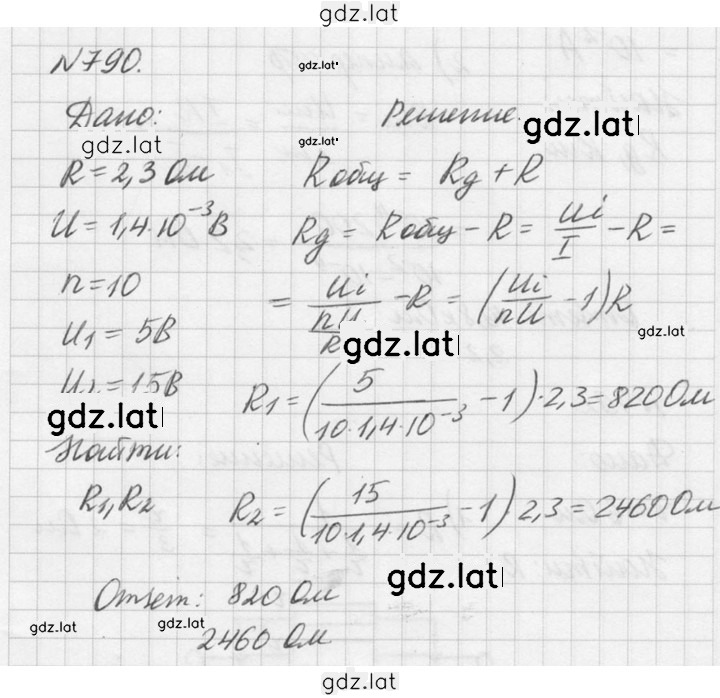 gdz.lat
N790.
gdz.lat
Дано: Решение.
gdz.lat gdz.lat gdz.lat
R = 2,3 Ом Rобщ = Rд + R
U = 1,4·10⁻³В Rд = Rобщ − R = Ui/I − R =
n = 10 = Ui/(nU/R) − R = (Ui/nU − 1)R
U₁ = 5В gdz.lat gdz.lat
U₂ = 15В R₁ = (5/(10·1,4·10⁻³) − 1)·2,3 = 820 Ом
gdz.lat
Найти:
R₁, R₂ R₂ = (15/(10·1,4·10⁻³) − 1) 2,3 = 2460 Ом
gdz.lat
Ответ: 820 Ом
gdz.lat gdz.lat
2460 Ом
gdz.lat